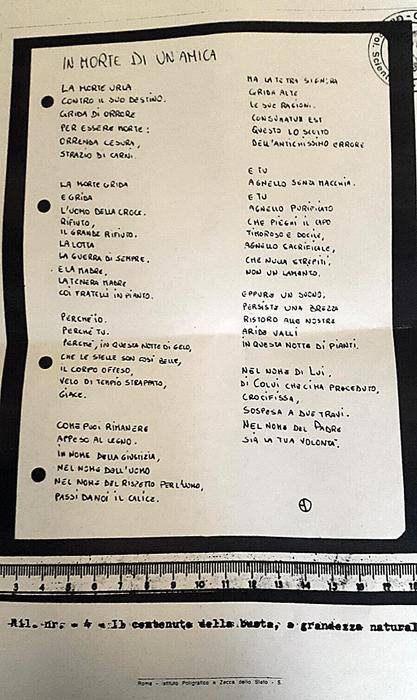 IN MORTE DI UN'AMICA
LA MORTE URLA
CONTRO IL SUO DESTINO.
GRIDA DI ORRORE
PER ESSERE MORTE:
ORRENDA CESURA,
STRAZIO DI CARNI.
LA MORTE GRIDA
E GRIDA
L'UOMO DELLA CROCE.
RIFIUTO,
IL GRANDE RIFIUTO.
LA LOTTA
LA GUERRA DI SEMPRE.
E LA MADRE,
LA TENERA MADRE
COI FRATELLI IN PIANTO.
PERCHÉ IO.
PERCHÉ TU.
PERCHÉ, IN QUESTA NOTTE DI GELO,
CHE LE STELLE SON COSÌ BELLE,
IL CORPO OFFESO,
VELO DI TEMPIO STRAPPATO,
GIACE.
COME PUOI RIMANERE
APPESO AL LEGNO.
IN NOME DELLA GIUSTIZIA,
NEL NOME DELL'UOMO
NEL NOME DEL RISPETTO PER L'UOMO,
PASSI DA NOI IL CALICE.
MA LA TETRA SIGNORA
GRIDA ALTE
LE SUE RAGIONI.
CONSUMATUM EST
QUESTO LO SCEMPIO
DELL'ANTICHISSIMO ERRORE
E TU
AGNELLO SENZA MACCHIA.
E TU
AGNELLO PURIFICATO
CHE PIEGHI IL CAPO
TIMOROSO E DOCILE,
AGNELLO SACRIFICALE,
CHE NULLA STREPITI,
NON UN LAMENTO.
EPPURE UN SUONO,
PERSISTE UNA BREZZA
RISTORO ALLE NOSTRE
ARIDE VALLI
IN QUESTA NOTTE DI PIANTI.
NEL NOME DI LUI,
DI COLUI CHE CI HA PRECEDUTO,
CROCIFISSA,
SOSPESA A DUE TRAVI.
NEL NOME DEL PADRE
SIA LA TUA VOLONTÀ.
3 4 5 6 7 8 9 10 11 12 13 14 15 16 17
All. nr. - 4 - Il contenuto della busta, a grandezza natural
Roma - Istituto Poligrafico e Zecca dello Stato - S.